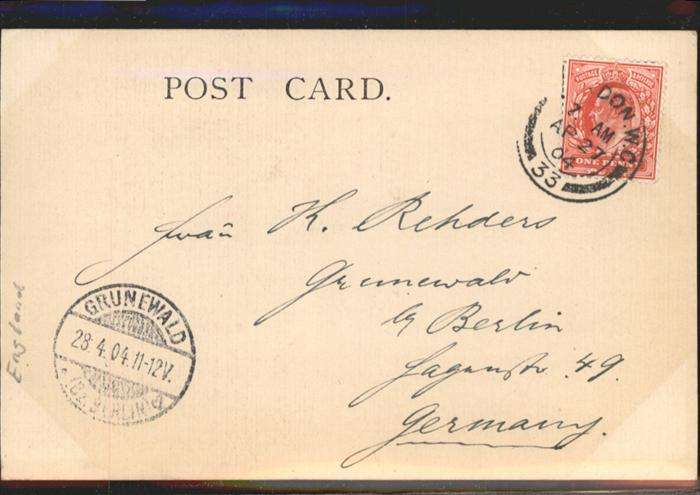 POST CARD.
POSTAGE
ONE PENNY
DON. W.C.
7 AM
AP 27
04
33
H. Rehders
Grunewald
b/ Berlin
49.
Germany.
GRUNEWALD
28.4.04.11-12V.
England